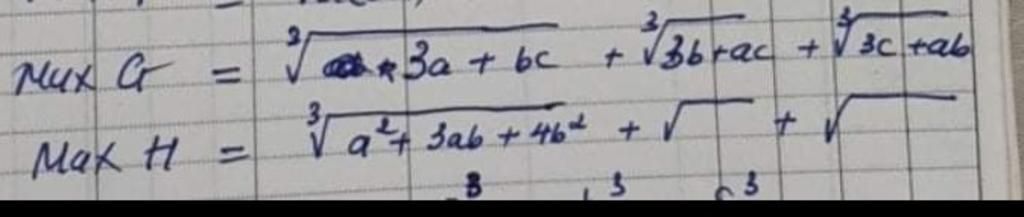 Max G = ∛(3a + bc) + ∛(3b + ac) + ∛(3c + ab)
Max H = ∛(a² + 3ab + 4b²) + √ + √
3 3 3